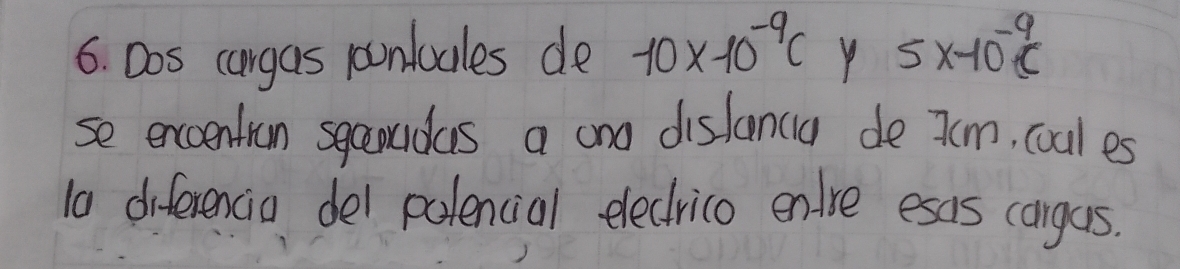 6. Dos cargas puntuales de 10x10⁻⁹C y 5x10⁻⁹C
se encuentran separadas a una distancia de 7cm. cual es
la diferencia del potencial electrico entre esas cargas.